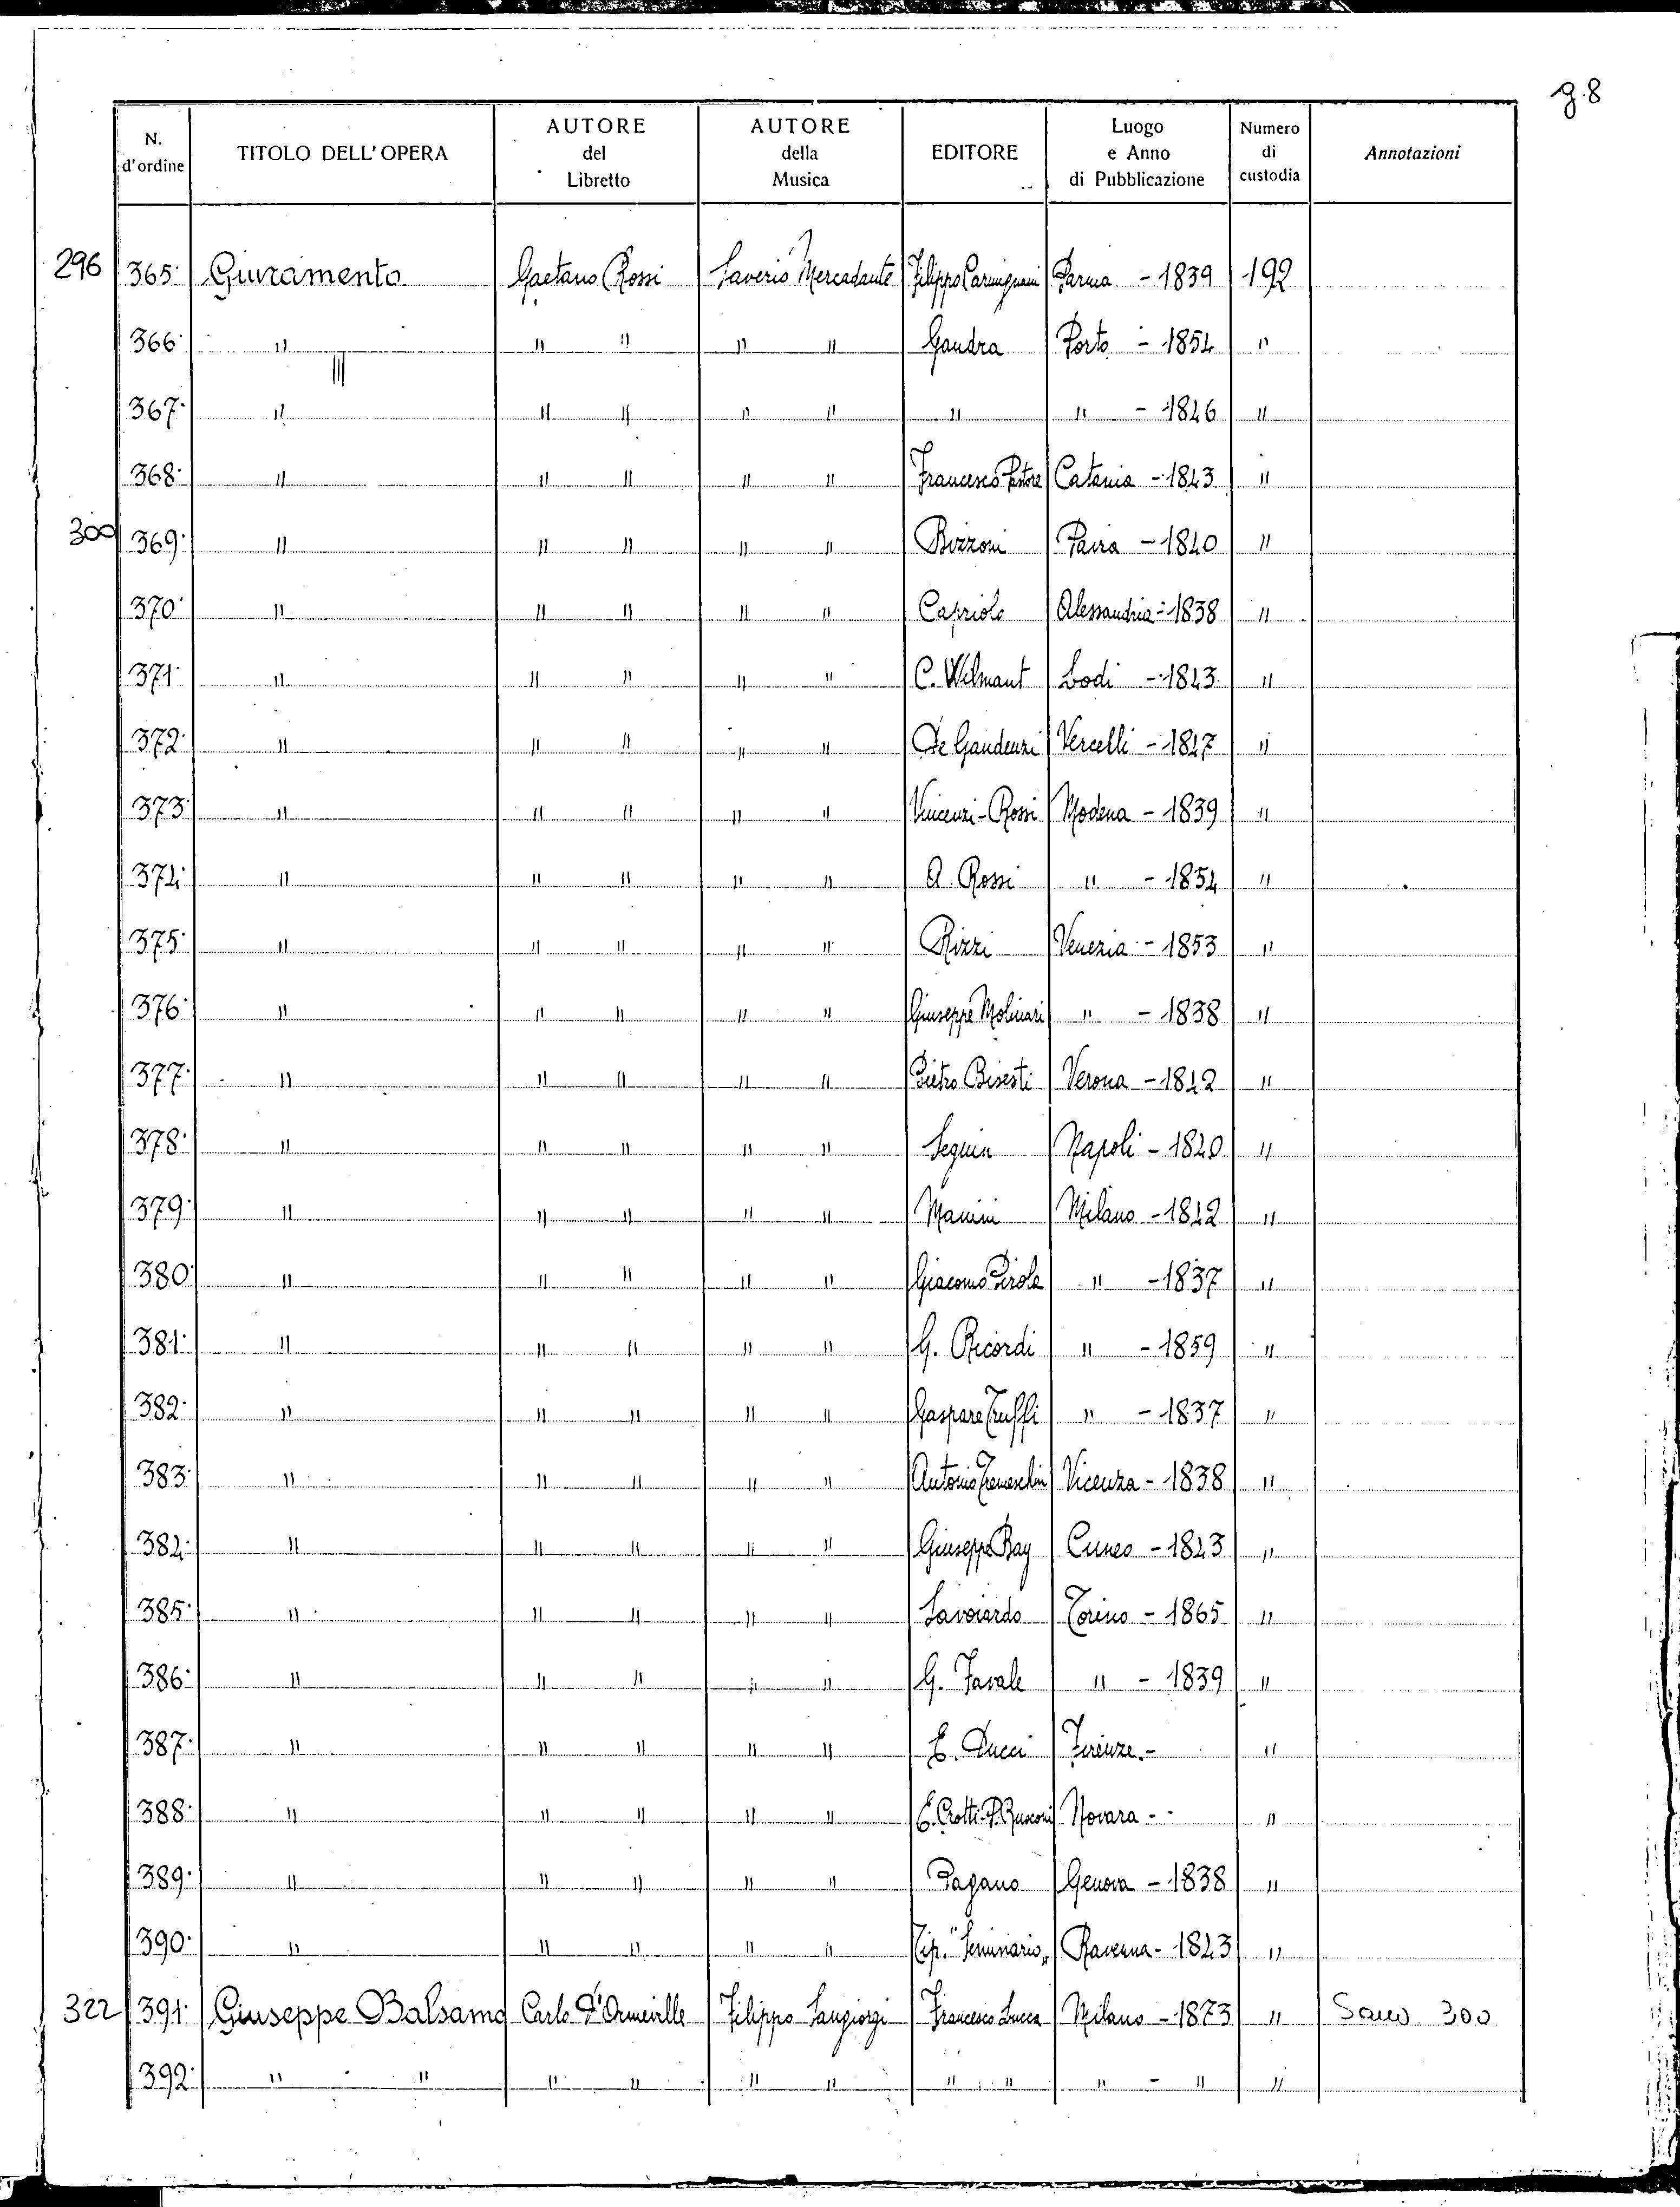 g.8
N. d'ordine | TITOLO DELL'OPERA | AUTORE del Libretto | AUTORE della Musica | EDITORE | Luogo e Anno di Pubblicazione | Numero di custodia | Annotazioni
296 365 Giuramento Gaetano Rossi Saverio Mercadante Filippo Carmignani Parma - 1839 192
366 " " " " " Gandra Porto - 1854 "
367 " " " " " " " - 1846 "
368 " " " " " Francesco Pastore Catania - 1843 "
300 369 " " " " " Bizzoni Pavia - 1840 "
370 " " " " " Capriolo Alessandria - 1838 "
371 " " " " " C. Wilmant Lodi - 1843 "
372 " " " " " De Gaudenzi Vercelli - 1847 "
373 " " " " " Vincenzi - Rossi Modena - 1839 "
374 " " " " " A. Rossi " - 1854 "
375 " " " " " Rizzi Venezia - 1853 "
376 " " " " " Giuseppe Molinari " - 1838 "
377 " " " " " Pietro Bisesti Verona - 1842 "
378 " " " " " Seguin Napoli - 1840 "
379 " " " " " Manini Milano - 1842 "
380 " " " " " Giacomo Pirola " - 1837 "
381 " " " " " G. Ricordi " - 1859 "
382 " " " " " Gaspare Truffi " - 1837 "
383 " " " " " Antonio Vicenza - 1838 "
384 " " " " " Giuseppe Bay Cuneo - 1843 "
385 " " " " " Savoiardo Torino - 1865 "
386 " " " " " G. Favale " - 1839 "
387 " " " " " E. Ducci Firenze - "
388 " " " " " E. Crotti - P. Rusconi Novara - "
389 " " " " " Pagano Genova - 1838 "
390 " " " " " Tip. "Seminario" Ravenna - 1843 "
322 391 Giuseppe Balsamo Carlo D'Ormeville Filippo Sangiorgi Francesco Lucca Milano - 1873 " 300
392 " " " " " " " " " - " "